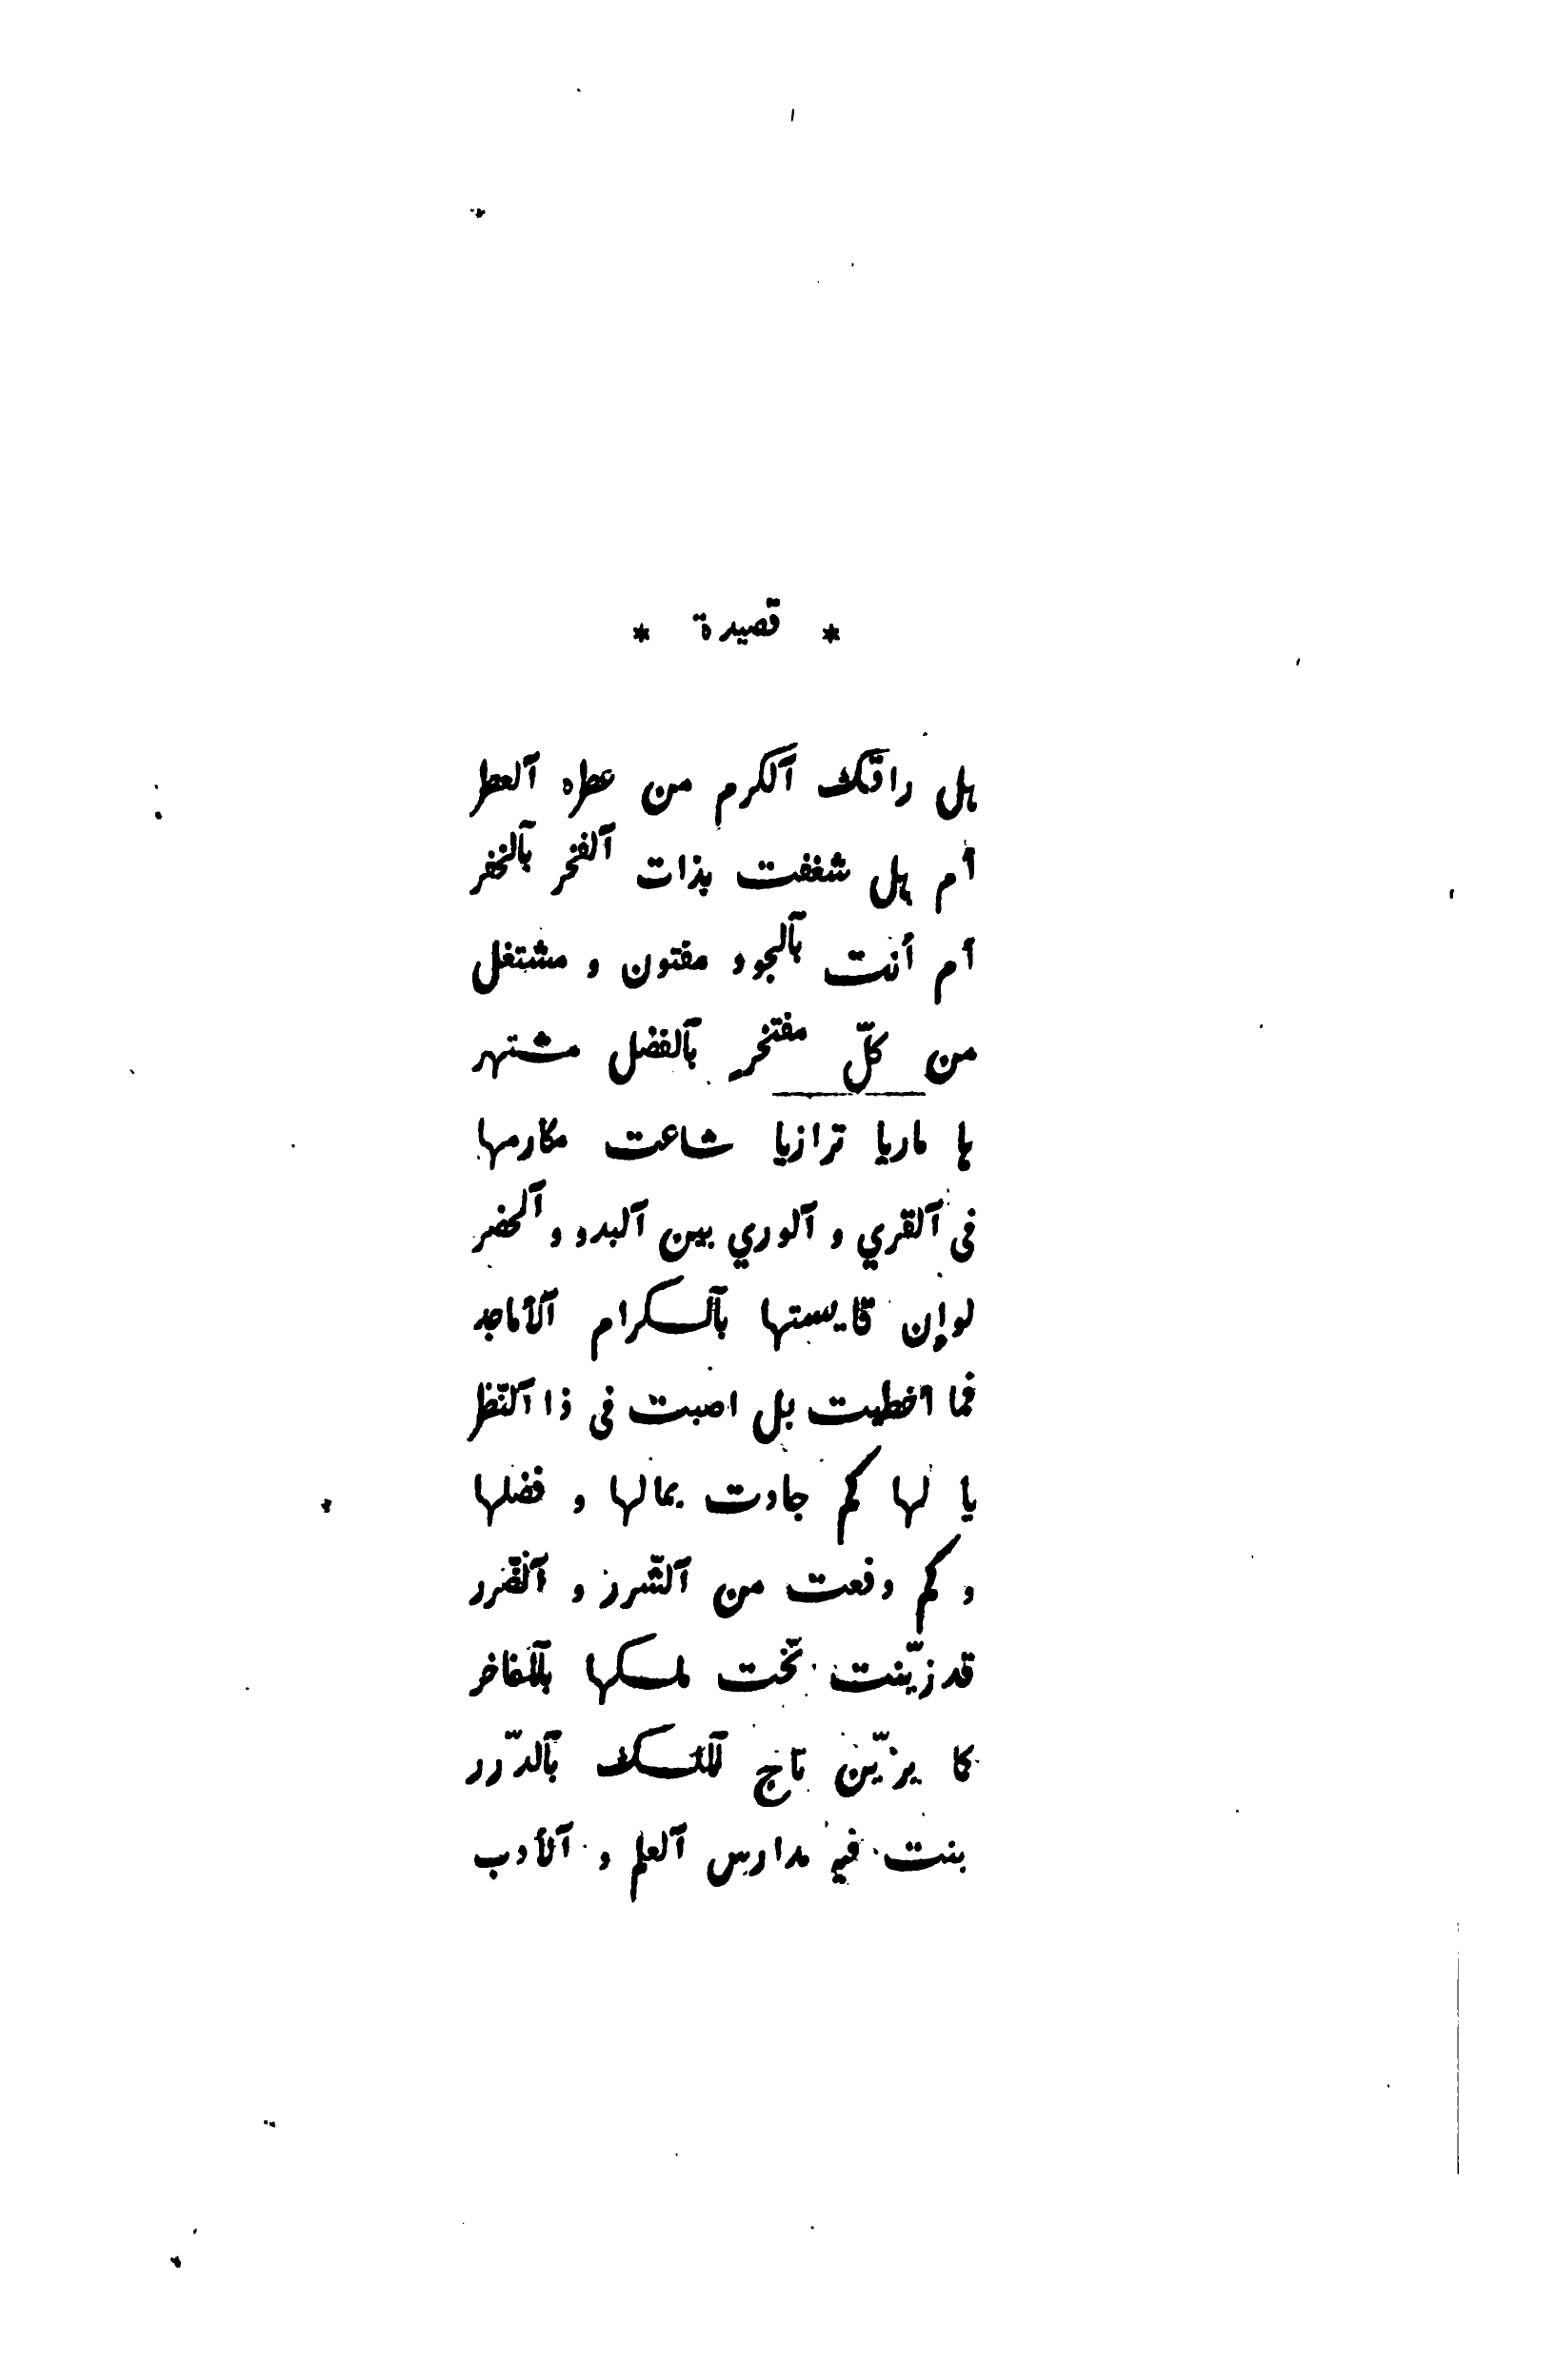 * قصيدة *
هل راقك آلكرم من عطره آلعطر
أم هل شغفت بذات آلفخر بآلخفر
أم أنت بآلجود مفتون و مشتغل
من كلّ مفتخرِ بآلفضل مشتهر
ها ماريا ترازيا شاعت مكارمها
فى آلقري و آلوري بين آلبدو و آلحضر
لو إن قايستها بآلكرام آلأماجد
فما اخطيت بل اصبت فى ذا آلنّظر
يا لها كم جادت بمالها و فضلها
و كم دفعت من آلشّرر و آلضّرر
قد زيّنت تخت ملكها بآلمفاخر
كا يزيّن تاج آلملك بآلدّرر
بنت فيه مدارس آلعلم و آلأدب